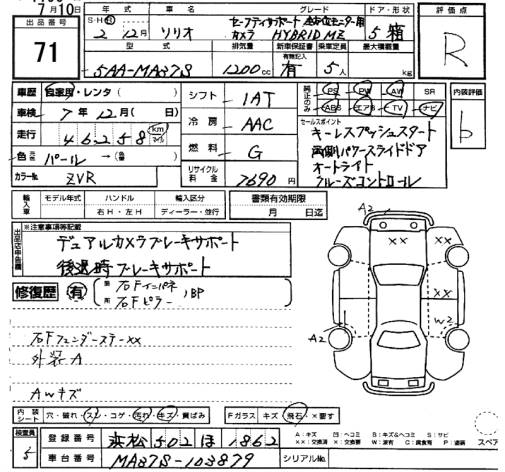 7月10日
出品番号 71
年式 車名 グレード ドア・形状
S・H・R 2年12月 ソリオ セーフティサポート 全方位モニター用カメラ HYBRID MZ 5 箱
型式 排気量 新車保証書 乗車定員 最大積載量
5AA-MA37S 1200cc 有 5人 kg
評価点 R
車歴 自家用・レンタ( )
車検 7年12月( 日)
走行 46258 km
色 パール →( 色)
カラーNo. ZVR
シフト IAT
冷房 AAC
燃料 G
リサイクル料金 7690円
純正のみ PS PW AW SR
ABS エアB TV ナビ
内装評価 b
セールスポイント
キーレスプッシュスタート
両側パワースライドドア
オートライト
クルーズコントロール
輸入車 モデル年式 ハンドル 輸入区分 書類有効期限
右H・左H ディーラー・並行 月 日迄
出品店申告欄 ※注意事項等記載
デュアルカメラブレーキサポート
後退時ブレーキサポート
修復歴 有 右Fインパネ
右Fピラー BP
右Fフェンダーステーxx
外装A
AWキズ
A2
XX XX
XX
A2 W2
内装シート 穴・破れ・スレ・コゲ・汚れ・キズ・黄ばみ Fガラス キズ・飛石・×要す
検査員 登録番号 浜松502ほ1862
車台番号 MA37S-103879 シリアルNo.
A:キズ 凹:ヘコミ B:キズ&ヘコミ S:サビ
X:要交換 XX:交換済 W:波有 C:腐食有 P:塗装
スペア